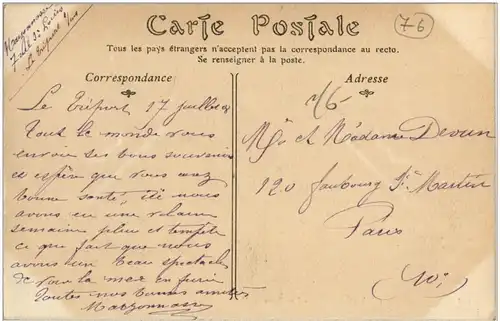 Carte Postale
76
Tous les pays étrangers n'acceptent pas la correspondance au recto.
Se renseigner à la poste.
Correspondance
Le Tréport 17 juillet
Tout le monde vous
envoie ses bons souvenirs
et espère que vous avez
bonne santé, ici nous
avons eu une vilaine
semaine pluie et tempête
ce qui fait que nous
avons un beau spectacle
de voir la mer en furie
Toutes nos bonnes amitiés
Adresse
Mr et Madame Devun
120 faubourg St Martin
Paris